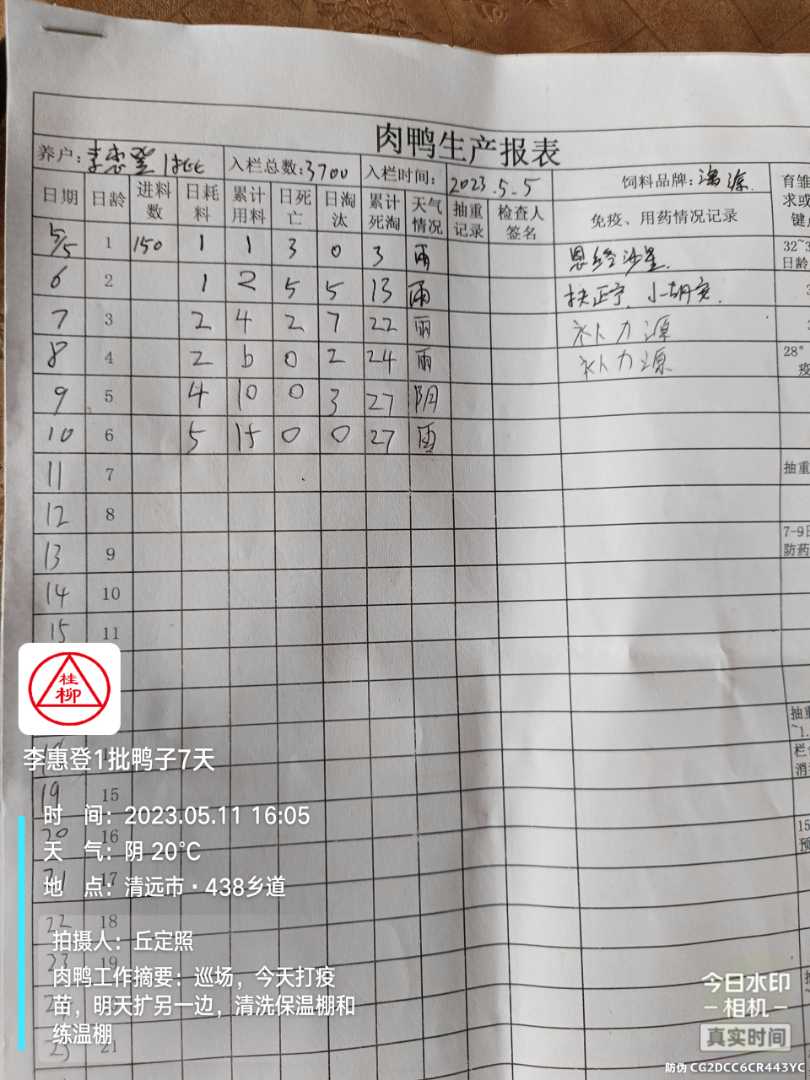 肉鸭生产报表
养户: 李惠登 1批 入栏总数: 3700 入栏时间: 2023.5.5 饲料品牌: 温氏
日期 日龄 进料数 日耗料 累计用料 日死亡 日淘汰 累计死淘 天气情况 抽重记录 检查人签名 免疫、用药情况记录 育雏
求或
键点
5/5 1 150 1 1 3 0 3 雨 恩诺沙星 32~3
日龄
6 2 1 2 5 5 13 雨 扶正宁、小胡安 3
7 3 2 4 2 7 22 雨 补力源
8 4 2 6 0 2 24 雨 补力源 28°
疫
9 5 4 10 0 3 27 阴
10 6 5 15 0 0 27 雨
11 7 抽重
12 8
13 9 7-9日
防药
14 10
15 11
桂柳
抽重
~1.
栏
消
李惠登1批鸭子7天
19 15
时 间: 2023.05.11 16:05
20 16
15
预
天 气: 阴 20℃
21 17
地 点: 清远市·438乡道
22 18
拍摄人: 丘定照
23 19
肉鸭工作摘要: 巡场，今天打疫
苗，明天扩另一边，清洗保温棚和
练温棚
25 21
今日水印
相机
真实时间
防伪 CG2DCC6CR443YC